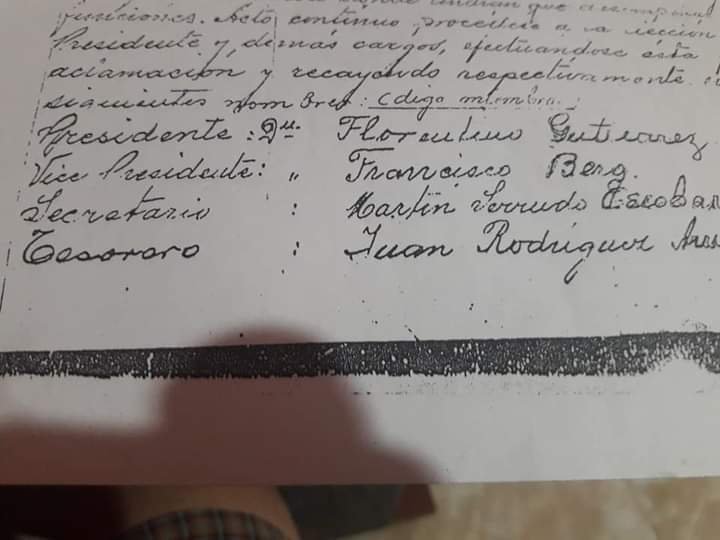 que desempeñar
funciones. Acto continuo, procedióse a la elección
Presidente y, demás cargos, efectuándose ésta
aclamación y recayendo respectivamente
siguientes nombres: código miembro:
Presidente : Dn. Florentino Gutierrez
Vice Presidente: " Francisco Berg.
Secretario : Martín Serrudo Escobar
Tesorero : Juan Rodríguez